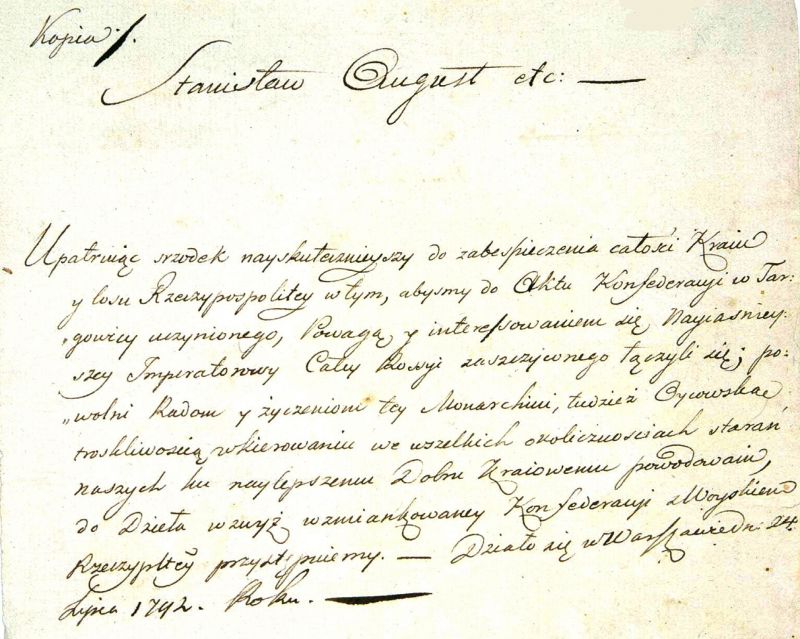 Kopia ./.
Stanisław August etc: —
Upatruiąc srzodek nayskutecznieyszy do zabespieczenia całości Kraiu
y losu Rzeczypospolitey w tym, abysmy do Aktu Konfederacyi w Tar:
„gowicy uczynionego, Powagą y interessowaniem się Nayiasniey:
szey Imperatorowy Całey Rossyi zaszczyconego łączyli się; po:
„wolni Radom y życzeniom tey Monarchini, tudzież Oycowską
troskliwością w kierowaniu we wszelkich okolicznosciach starań
naszych ku naylepszemu Dobru Kraiowemu powodowani,
do Dzieła wzwyż wzmiankowaney Konfederacyi z Woyskiem
Rzeczypltey przystępuiemy. — Działo się w Warszawie dn: 24.
Lipca 1792. Roku. —